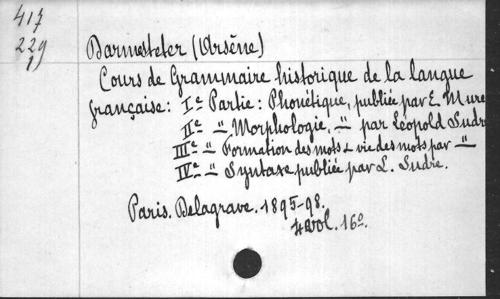 417
229
1)
Darmesteter (Arsène)
Cours de Grammaire historique de la langue
française: Ie Partie: Phonétique, publiée par E. Mure
IIe " Morphologie, " par Léopold Sudr
IIIe " Formation des mots & vie des mots par "
IVe " Syntaxe publiée par L. Sudre.
Paris. Delagrave. 1895-98.
4 vol. 16°.